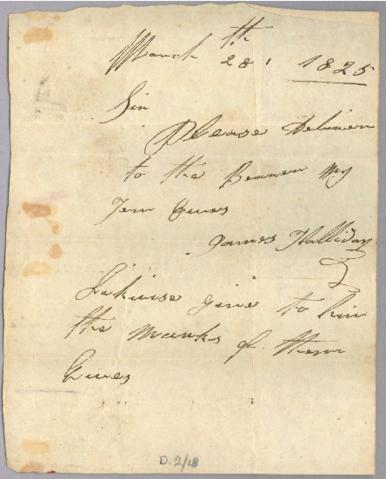 March 28th 1825
Sir
Please Deliver
to the Bearer my
Tenn Ewes
James Halliday
Likwise give to him
the marks of them
Ewes
D.2/18